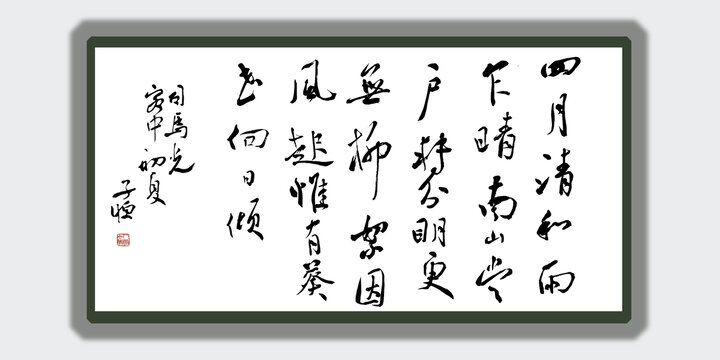 四月清和雨
乍晴南山當
户轉分明更
無柳絮因
風起惟有葵
花向日傾
司馬光
客中初夏
子